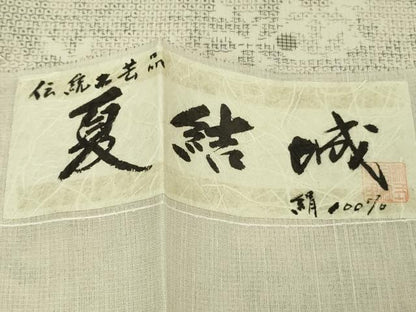 伝統工芸品
夏結城
絹100%